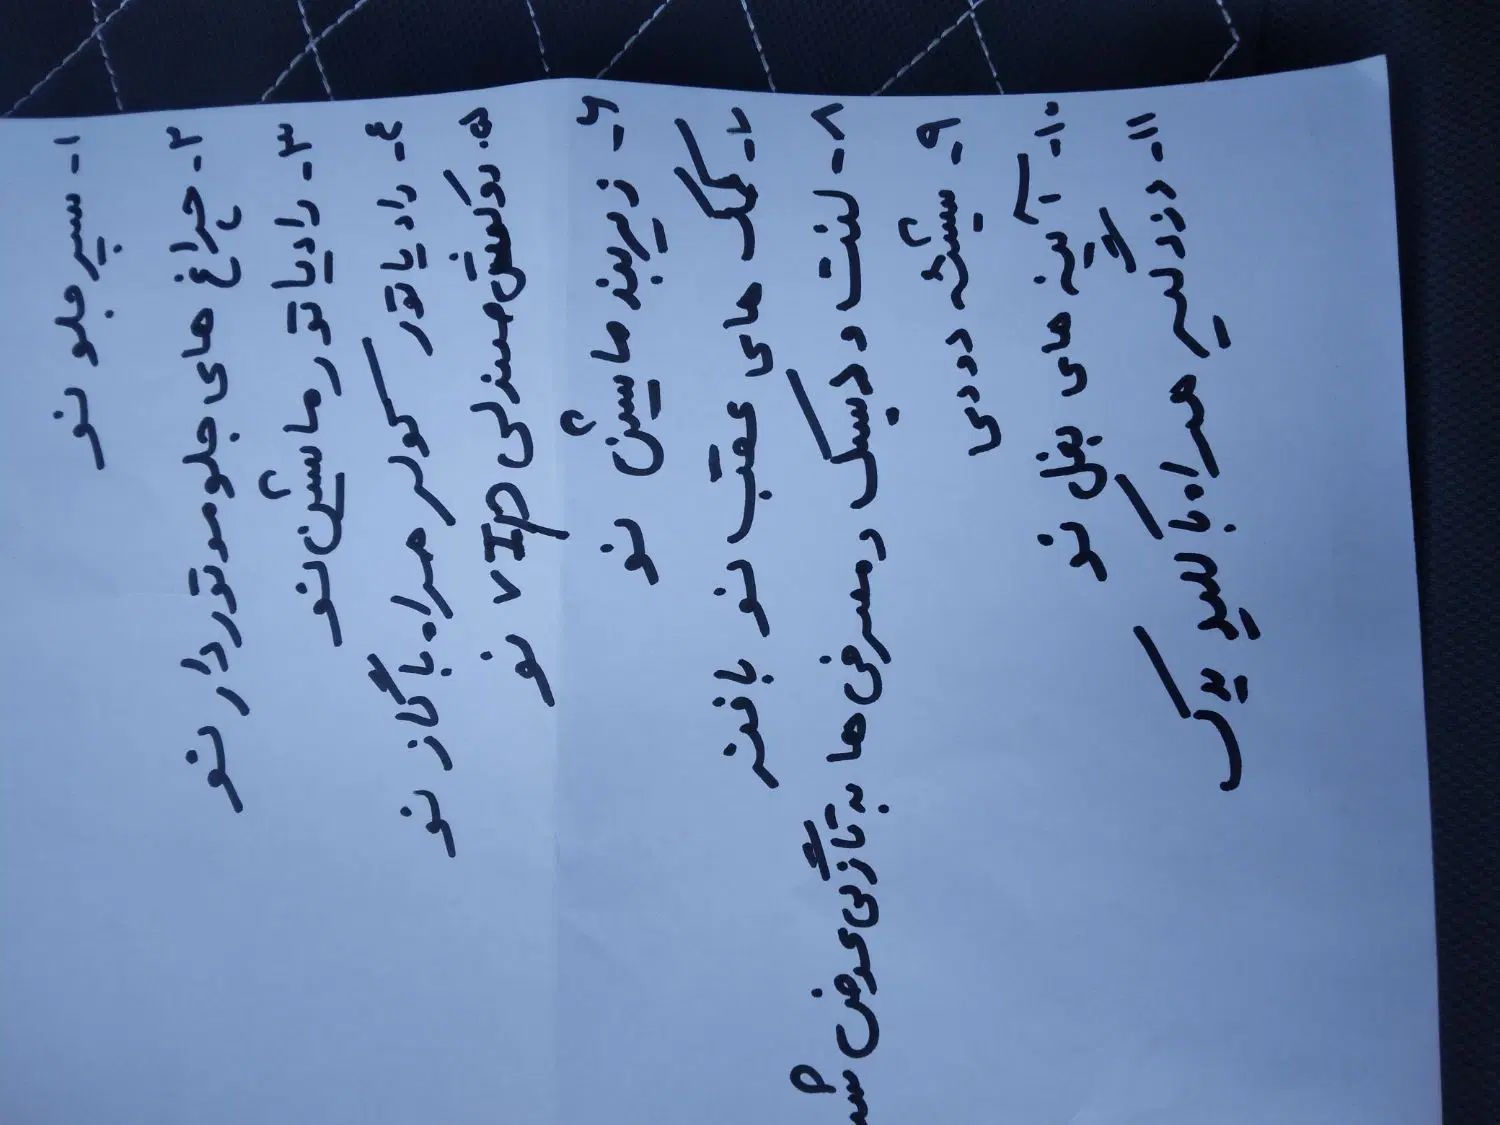 ۱- سپر جلو نو
۲- چراغ های جلو موتور دار نو
۳- رادیاتور ماشین نو
۴- رادیاتور کولر همراه با گاز نو
۵- روکش صندلی VIP نو
۶- زیربند ماشین نو
۷- کمک های عقب نو با فنر
۸- لنت و دیسک و مصرفی ها به تازگی عوض
۹- شیشه دودی
۱۰- آینه های بغل نو
۱۱- دزدگیر همراه با کلید یدک